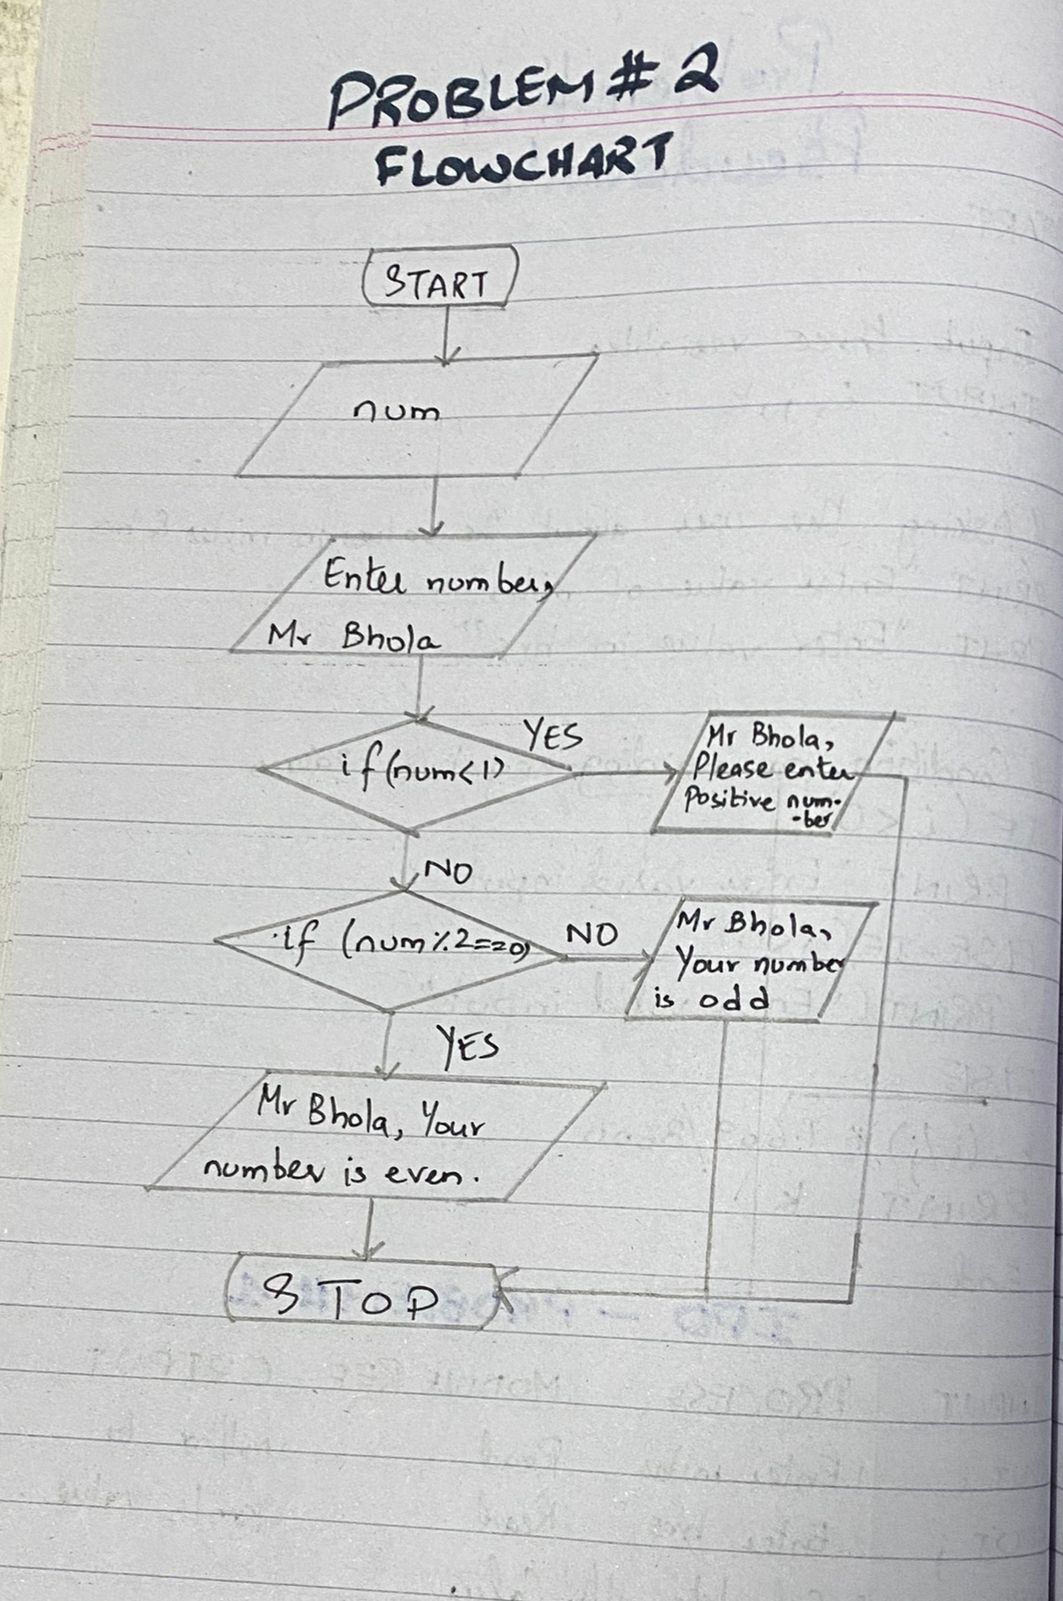 PROBLEM # 2
FLOWCHART
START
num
Enter number,
Mr Bhola
if (num<1)
YES
Mr Bhola,
Please enter
Positive num-
-ber
NO
if (num%2==0)
NO
Mr Bhola,
Your number
is odd
YES
Mr Bhola, Your
number is even.
STOP